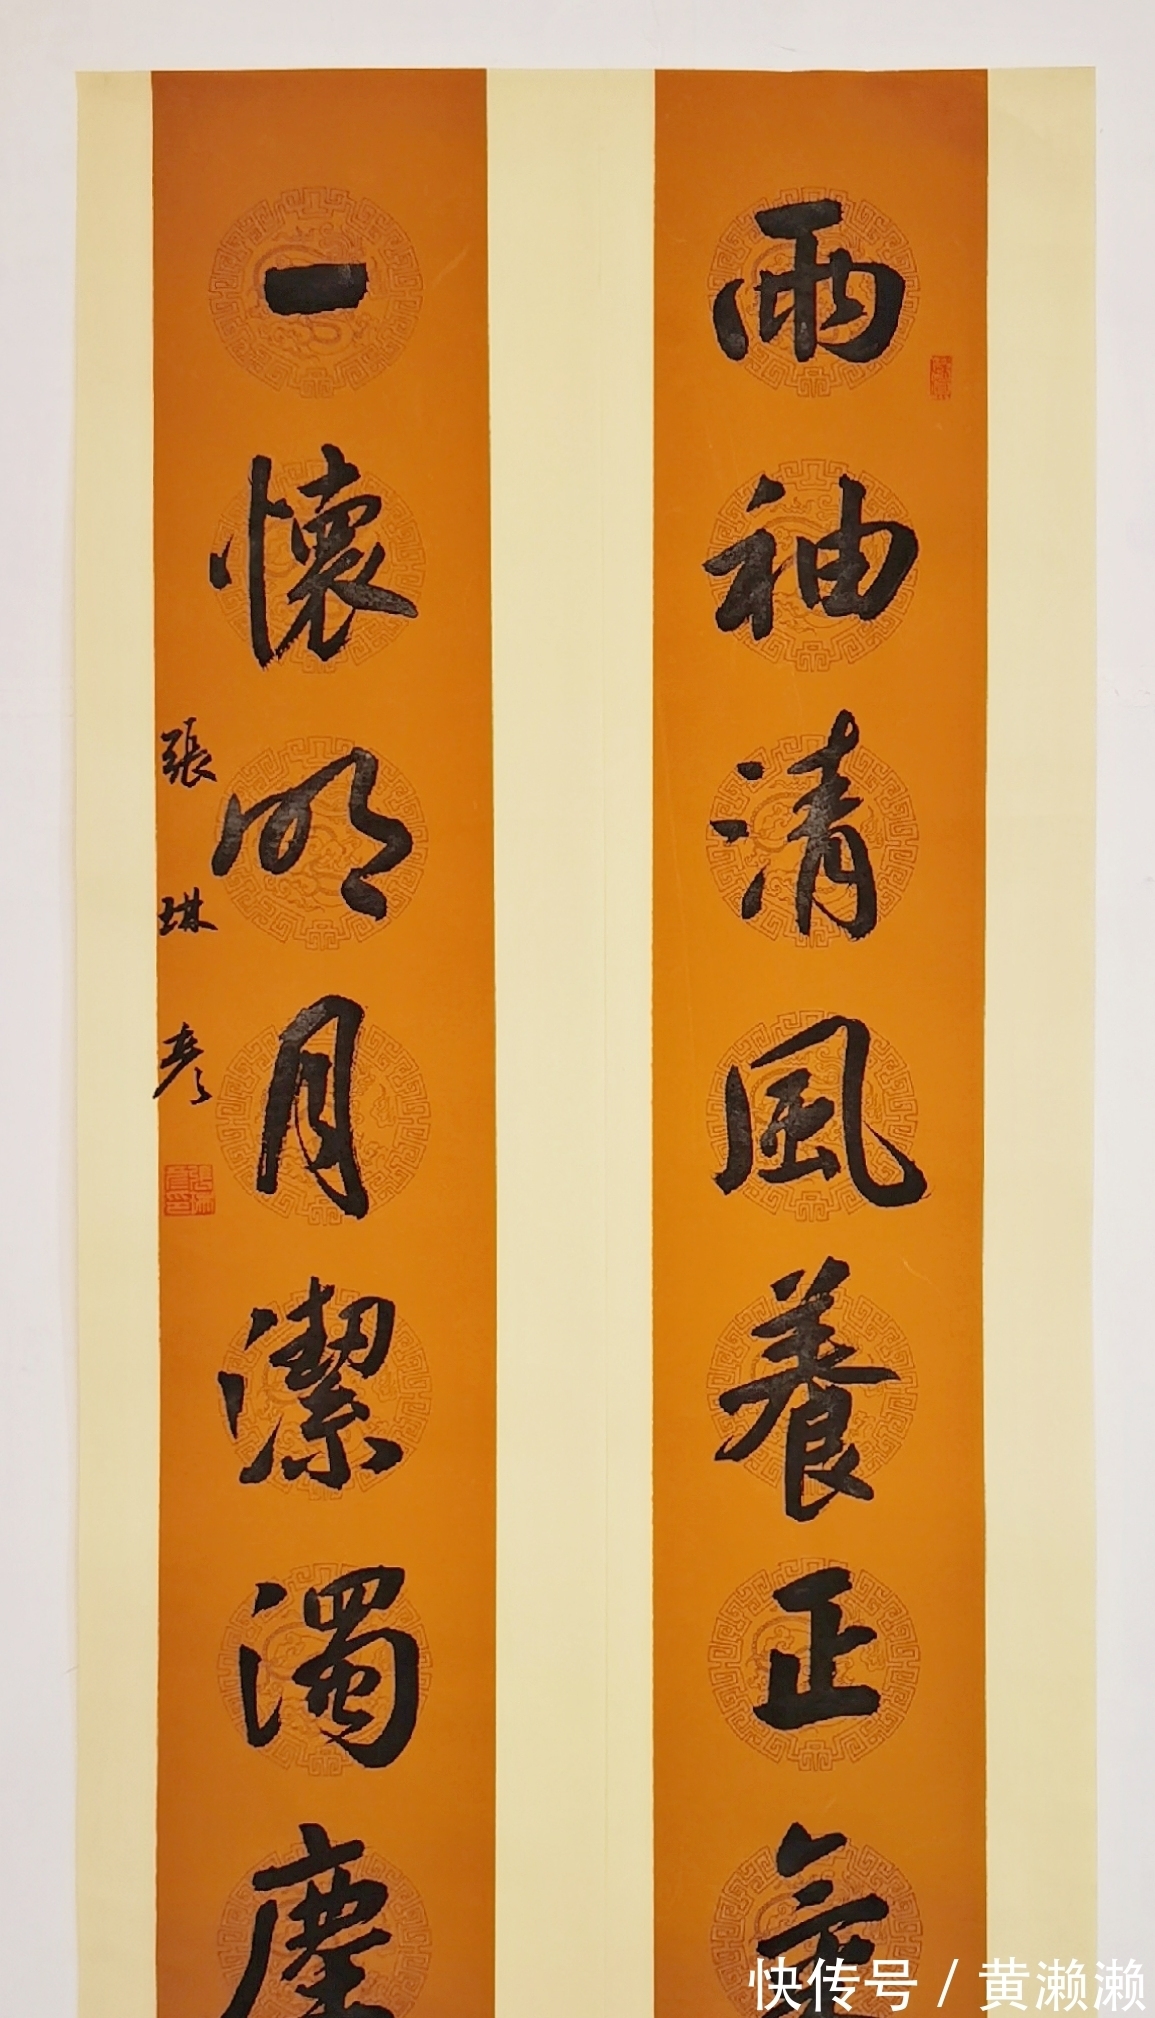 兩袖清風養正氣
一懷明月潔濁塵
張琳彥
快传号 / 黄濑濑